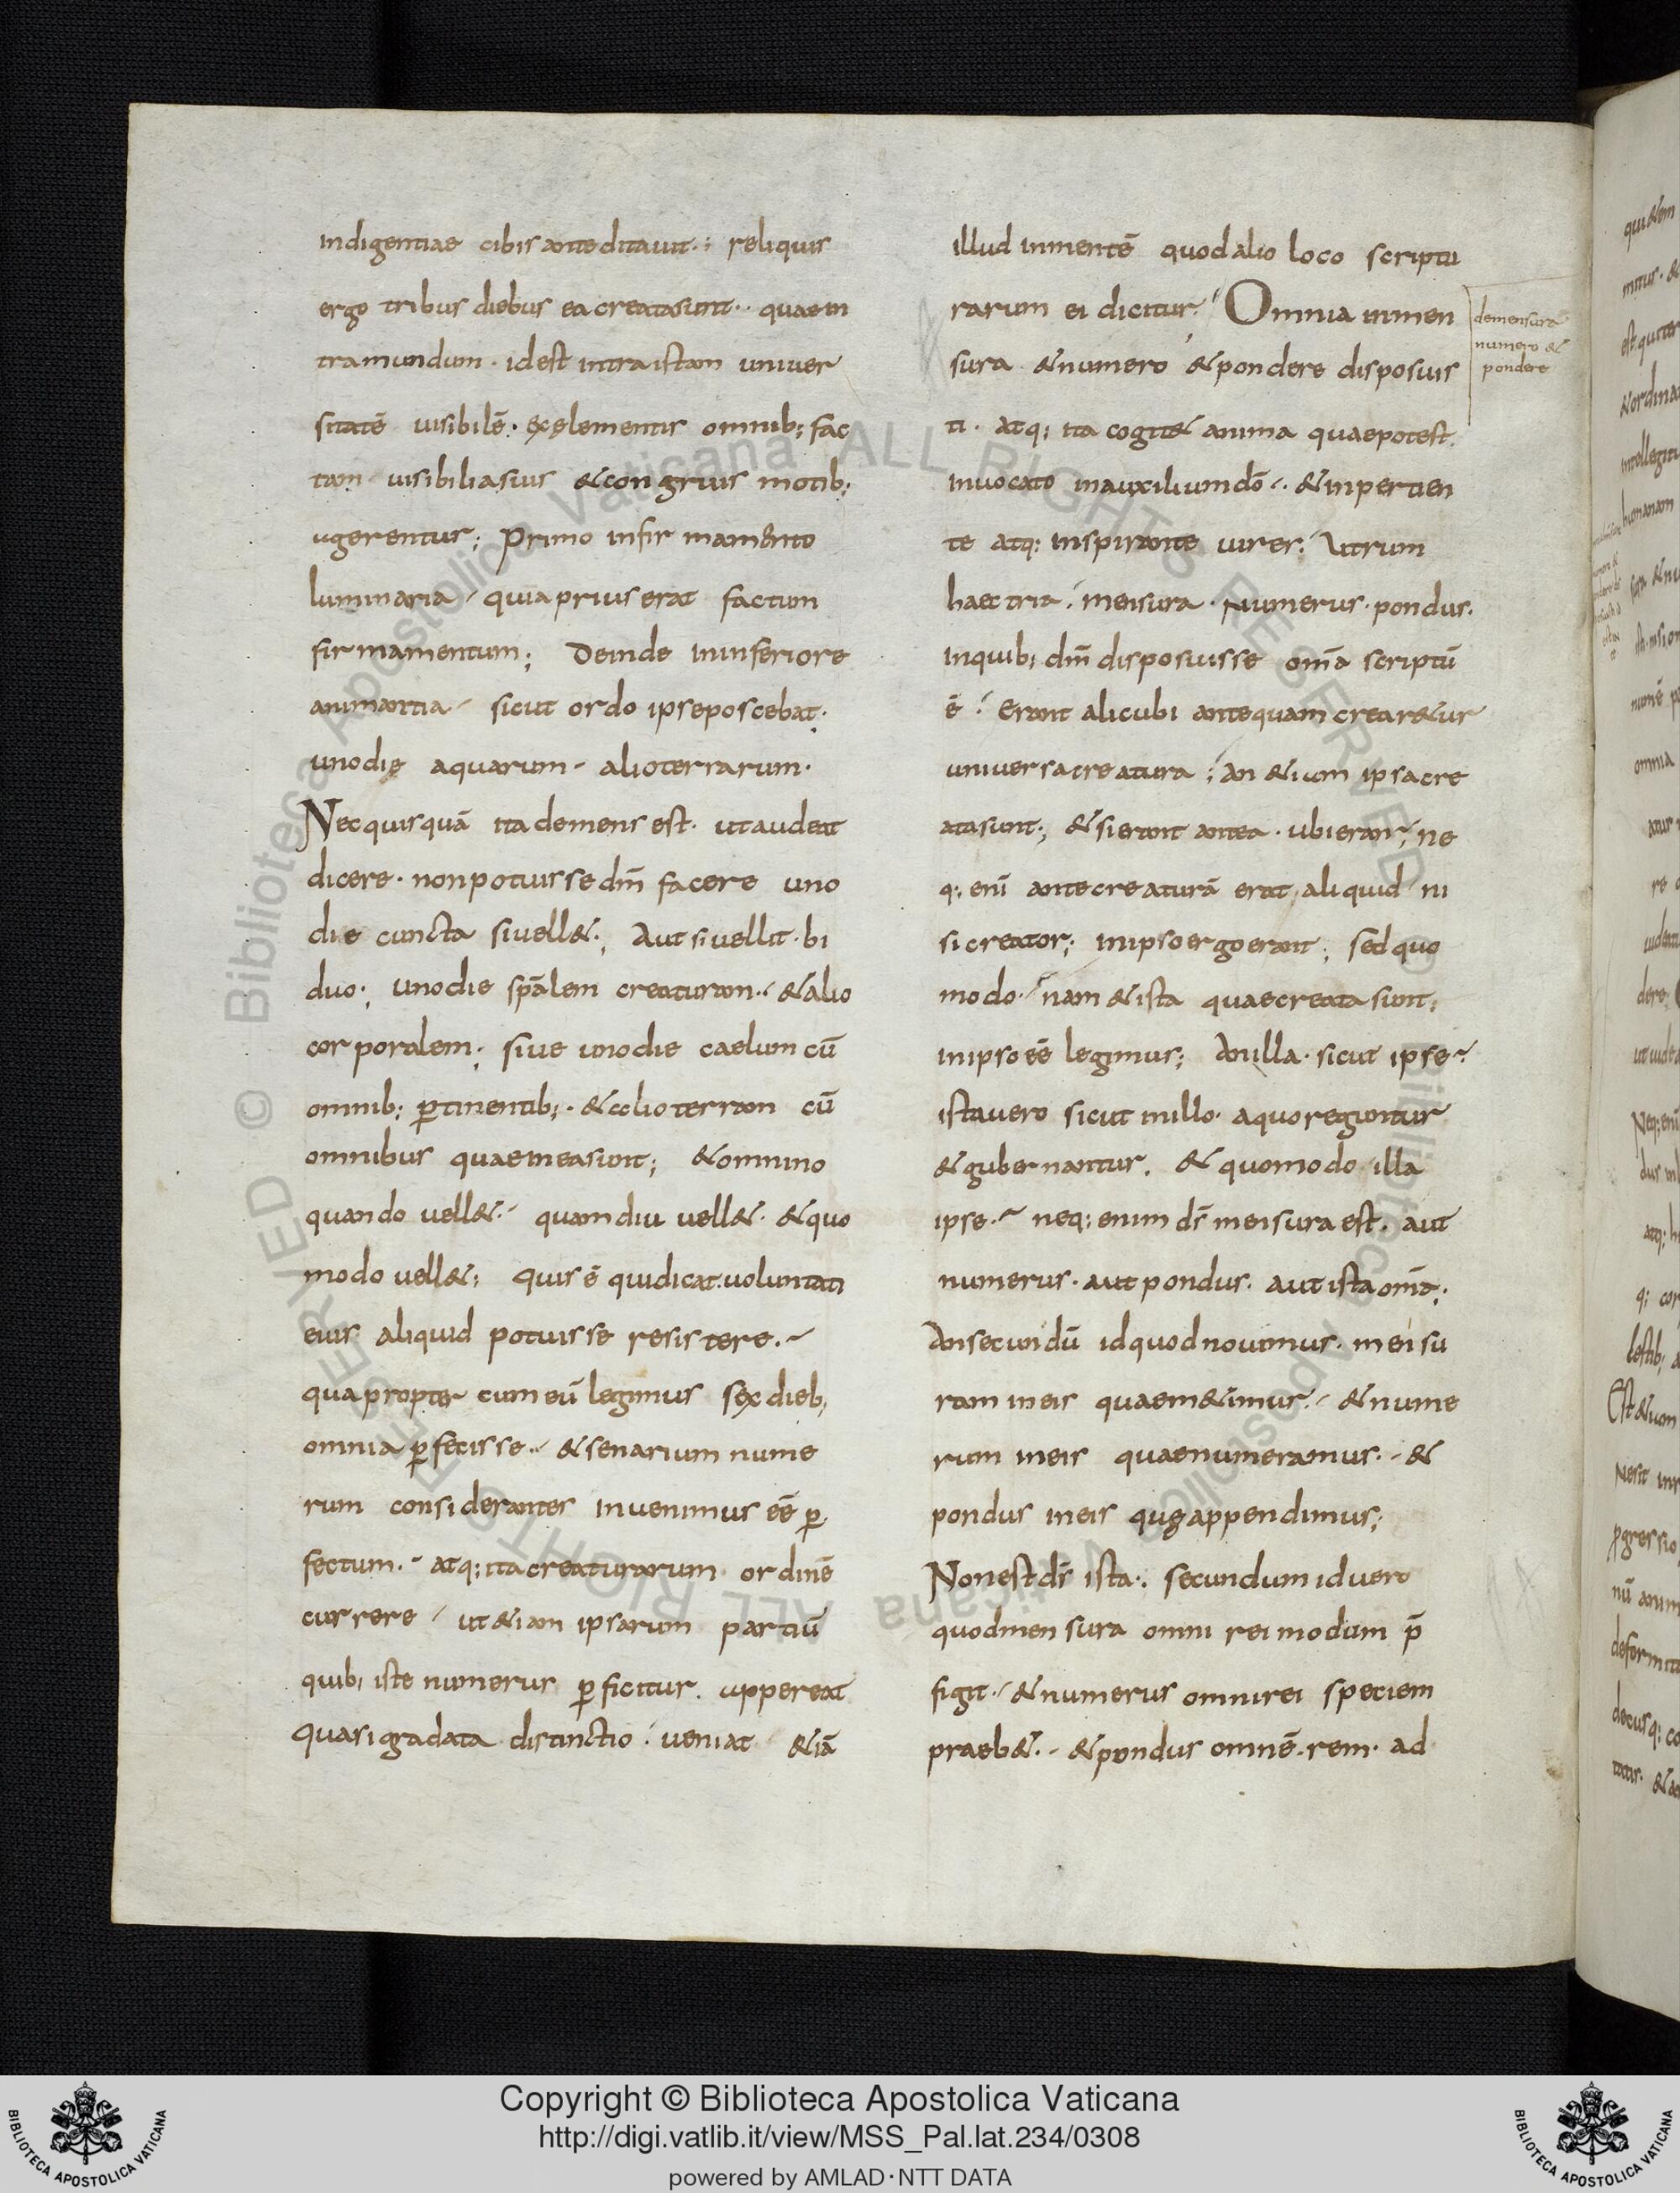 indigentiae cibis anteditauit·; reliquis
ergo tribus diebus ea creata sunt·· quae in
tra mundum· id est intra istam uniuer
sitatē uisibilē· ex elementis omnib; fac
tam uisibilia suis & congruis motib;
ugerentur; Primo in firmamento
luminaria / quia prius erat factum
firmamentum; Deinde in inferiore
animantia / sicut ordo ipse poscebat;
uno die aquarum / alio terrarum·
Nec quisquā ita demens est· ut audeat
dicere· non potuisse dm̄ facere uno
die cuncta si uell&·; Aut si uellit· bi
duo·; uno die sp̄alem creaturam·· & alio
corporalem·; siue uno die caelum cū
omnib; ꝑtinentib;· & alio terram cū
omnibus quae in ea sunt; & omnino
quando uell&·/ quamdiu uell&· & quo
modo uell&; quis ē qui dicat uoluntati
eius aliquid potuisse resistere·~
quapropter cum eū legimus sex dieb;
omnia ꝑfecisse·/ & senarium nume
rum considerantes inuenimus eē ꝑ
fectum·/ atq; ita creaturarum ordinē
currere / ut &iam ipsarum partiū
quib; iste numerus ꝑficitur· uppereat
quasi gradata distinctio· ueniat &iā
illud in mentē quod alio loco scriptu
rarum ei dicitur·/ Omnia in men
sura & numero & pondere disposuis
ti· atq; ita cogit& anima quae potest
inuocato in auxilium dō·· & inpertien
te atq; inspirante uires·/ Utrum
haec tria·/ mensura· Numerus· pondus·
in quib; dm̄ disposuisse om̄a scriptū
ē·/ Erant alicubi antequam crear&ur
uniuersa creatura·/ an &iam ipsa cre
ata sunt·; & si erant antea· ubi erant~; ne
q; eni ante creaturā erat aliquid ni
si creator·; in ipso ergo erant; sed quo
modo·/ nam & ista quae creata sunt;
in ipso eē legimus; An illa· sicut ipse·~
ista uero sicut in illo· a quo reguntur
& gubernantur· & quomodo illa
ipse·~ neq; enim ds̄ mensura est· aut
numerus· aut pondus· aut ista om̄a·;
An secundū id quod nouimus· mensu
ram in eis quae m&imur·/ & nume
rum in eis quae numeramus·/ &
pondus in eis quę appendimus;
Non est ds̄ ista·; secundum id uero
quod mensura omni rei modum p̄
figit·/ & numerus omni rei speciem
praeb&·/ & pondus omnē rem· ad
de mensura
numero &
pondere
Copyright © Biblioteca Apostolica Vaticana
http://digi.vatlib.it/view/MSS_Pal.lat.234/0308
powered by AMLAD·NTT DATA
BIBLIOTECA APOSTOLICA VATICANA
BIBLIOTECA APOSTOLICA VATICANA
© Biblioteca Apostolica Vaticana ALL RIGHTS RESERVED
© Biblioteca Apostolica Vaticana ALL RIGHTS RESERVED